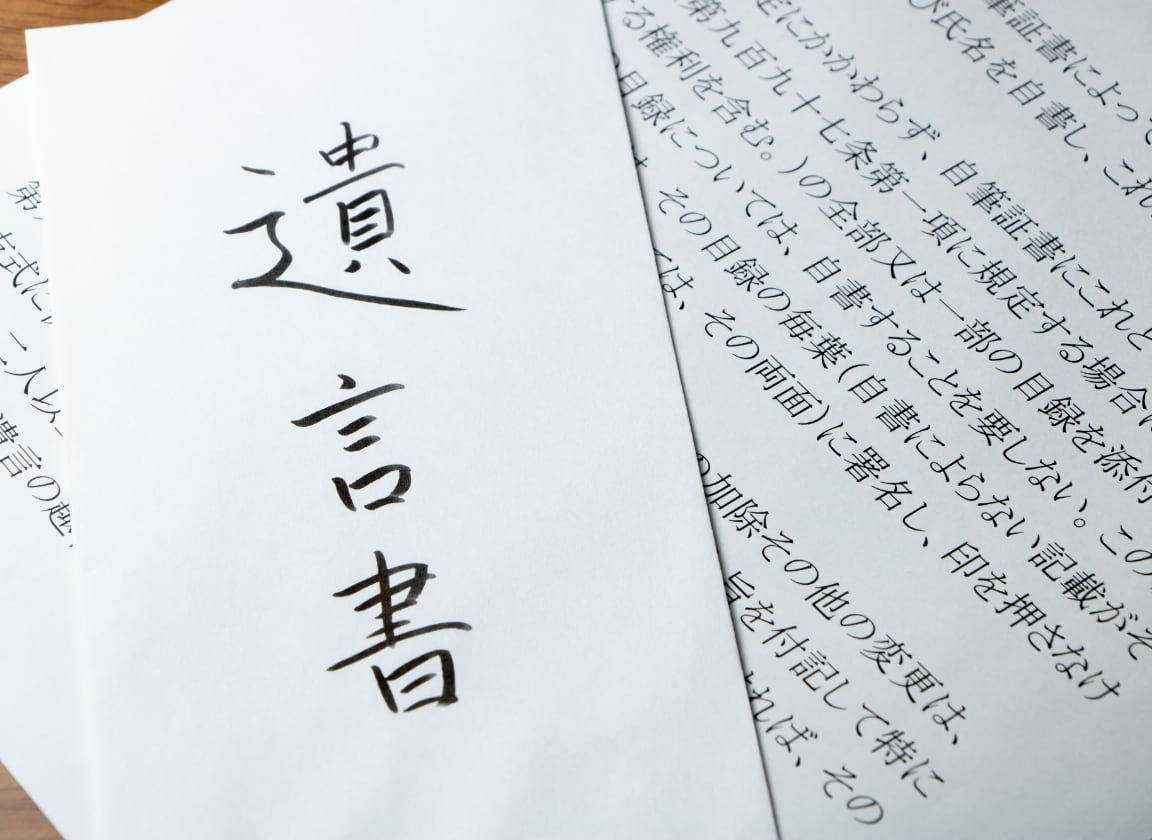 遺言書
筆証書によって
び氏名を自書し、これ
定にかかわらず、自筆証書にこれと
第九百九十七条第一項に規定する場合に
る権利を含む。)の全部又は一部の目録を添付
目録については、自書することを要しない。この
その目録の毎葉(自書によらない記載がそ
は、その両面)に署名し、印を押さなけ
の加除その他の変更は、
旨を付記して特に
れば、その
第
方式に
二人以
遺言の趣